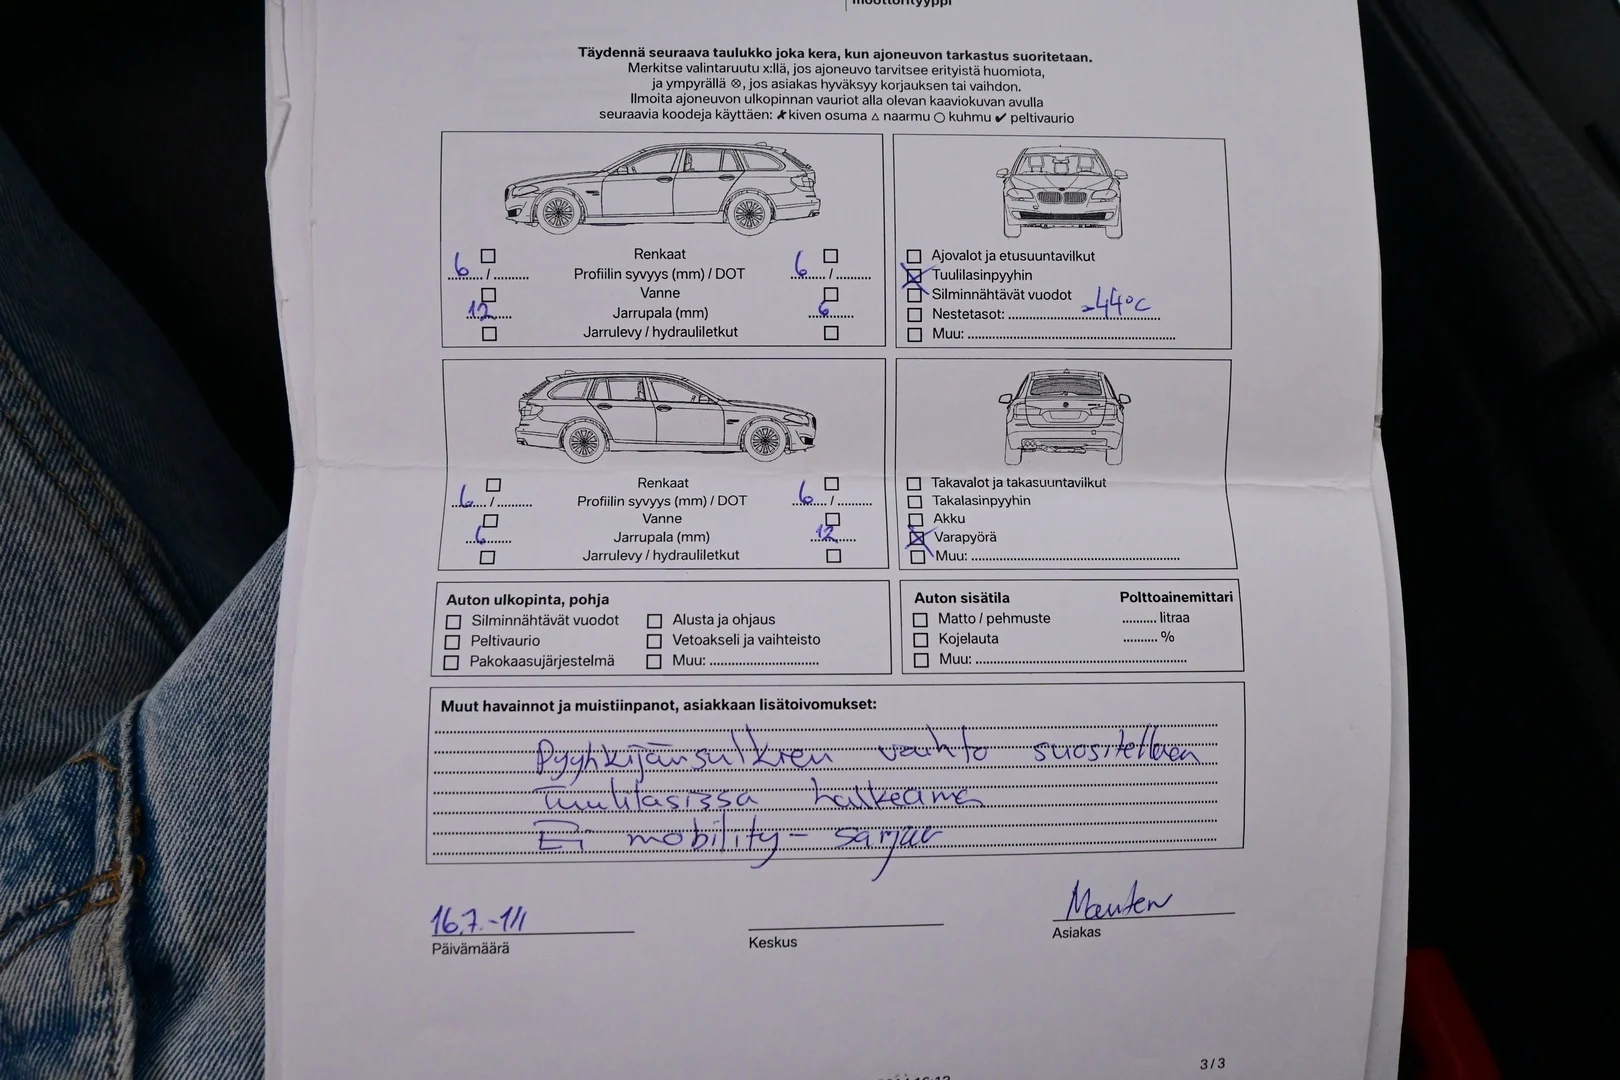 moottorityyppi
Täydennä seuraava taulukko joka kera, kun ajoneuvon tarkastus suoritetaan.
Merkitse valintaruutu x:llä, jos ajoneuvo tarvitsee erityistä huomiota,
ja ympyrällä ⊗, jos asiakas hyväksyy korjauksen tai vaihdon.
Ilmoita ajoneuvon ulkopinnan vauriot alla olevan kaaviokuvan avulla
seuraavia koodeja käyttäen: ✗ kiven osuma △ naarmu ○ kuhmu ✔ peltivaurio
Renkaat
6 / Profiilin syvyys (mm) / DOT 6 /
Vanne
12 Jarrupala (mm) 6
Jarrulevy / hydrauliletkut
Ajovalot ja etusuuntavilkut
Tuulilasinpyyhin
Silminnähtävät vuodot
Nestetasot: -44°C
Muu:
Renkaat
6 / Profiilin syvyys (mm) / DOT 6 /
Vanne
6 Jarrupala (mm) 12
Jarrulevy / hydrauliletkut
Takavalot ja takasuuntavilkut
Takalasinpyyhin
Akku
Varapyörä
Muu:
Auton ulkopinta, pohja
Silminnähtävät vuodot Alusta ja ohjaus
Peltivaurio Vetoakseli ja vaihteisto
Pakokaasujärjestelmä Muu:
Auton sisätila Polttoainemittari
Matto / pehmuste litraa
Kojelauta %
Muu:
Muut havainnot ja muistiinpanot, asiakkaan lisätoivomukset:
Pyyhkijänsulkien vaihto suositellaan
Tuulilasissa halkeama
Ei mobility-sarjaa
16.7.-14
Päivämäärä
Keskus
Asiakas
3 / 3